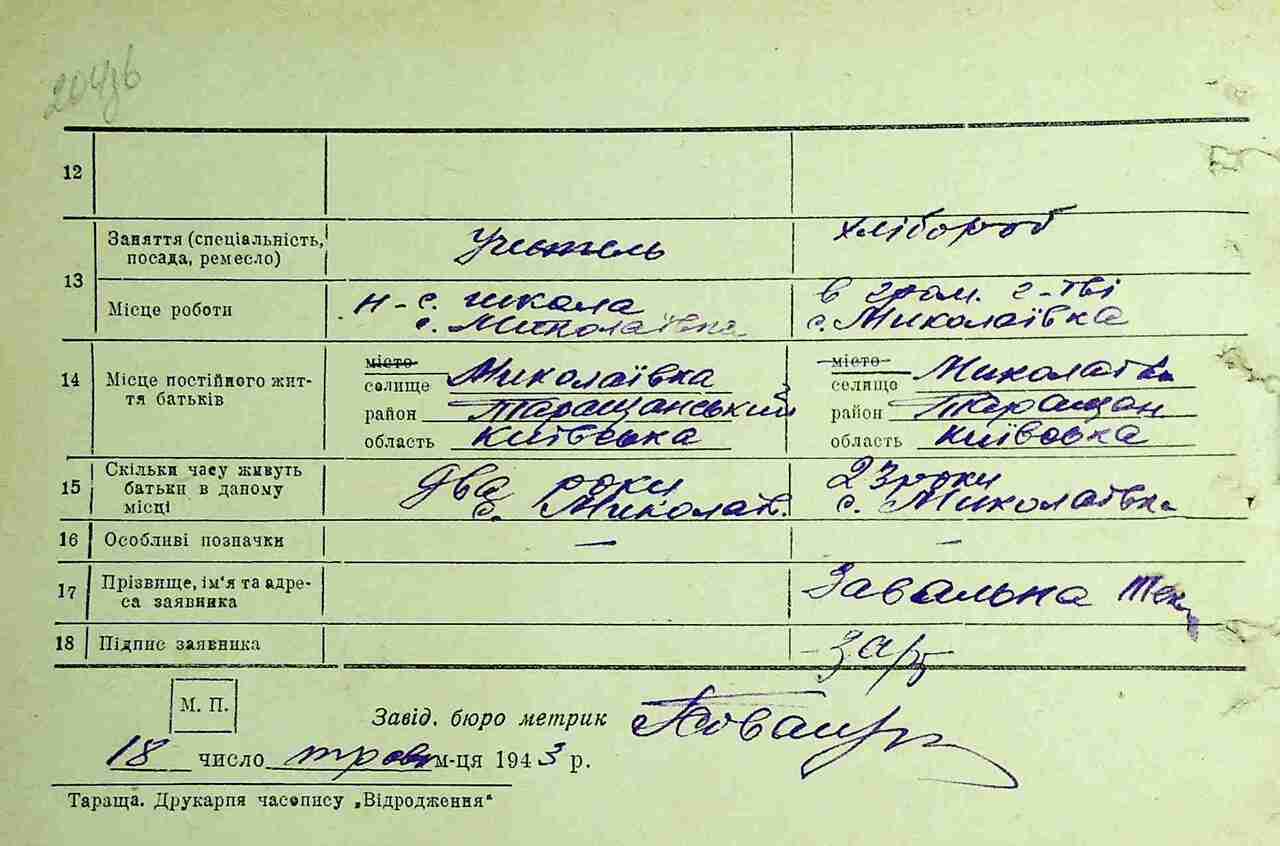 12
13 Заняття (спеціальність, посада, ремесло) Учитель хлібороб
Місце роботи н-с. школа в гром. г-тві
с. Миколаївка с. Миколаївка
14 Місце постійного життя батьків
місто місто
селище Миколаївка селище Миколаївка
район Таращанський район Таращан
область Київська область Київська
15 Скільки часу живуть батьки в даному місці два роки 23 роки
с. Миколаїв. с. Миколаївка
16 Особливі позначки — —
17 Прізвище, ім'я та адреса заявника Завальна
18 Підпис заявника
М. П.
Завід. бюро метрик
18 число трав м-ця 1943 р.
Тараща. Друкарня часопису „Відродження"